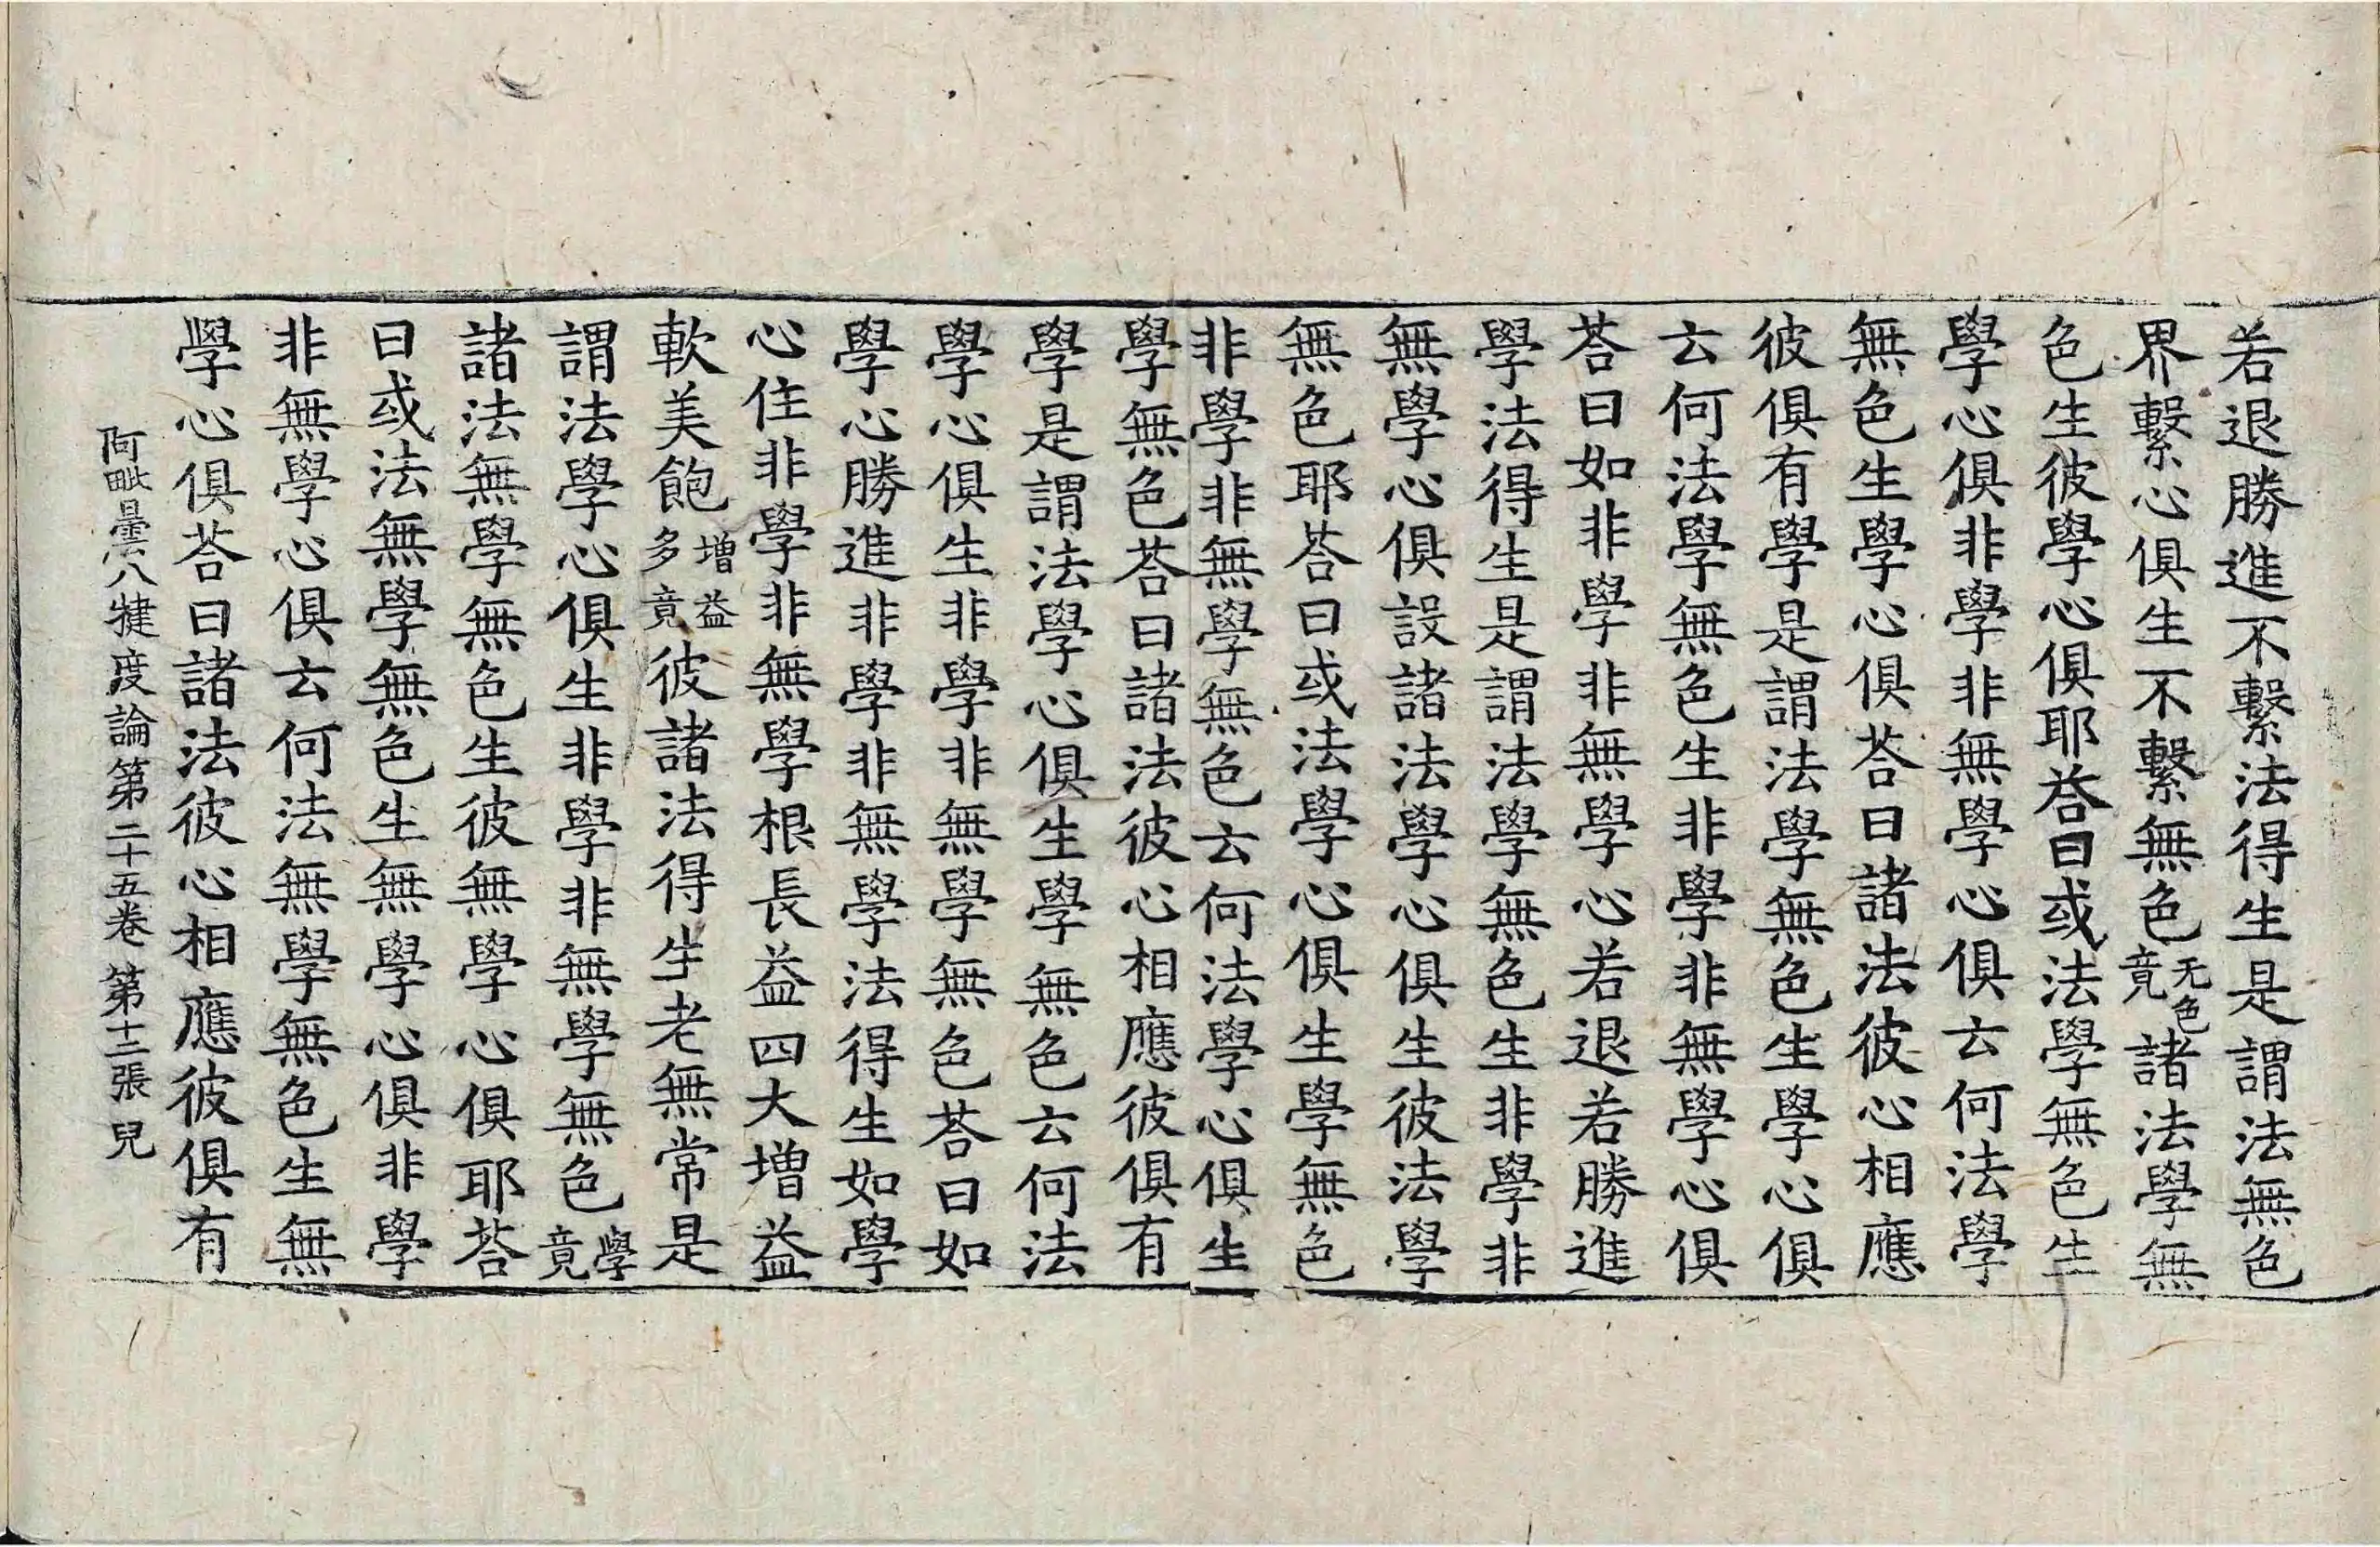 若退勝進不繫法得生是謂法無色
界繫心俱生不繫無色无色竟諸法學無
色生彼學心俱耶荅曰或法學無色生
學心俱非學非無學心俱云何法學
無色生學心俱荅曰諸法彼心相應
彼俱有學是謂法學無色生學心俱
云何法學無色生非學非無學心俱
荅曰如非學非無學心若退若勝進
學法得生是謂法學無色生非學非
無學心俱設諸法學心俱生彼法學
無色耶荅曰或法學心俱生學無色
非學非無學無色云何法學心俱生
學無色荅曰諸法彼心相應彼俱有
學是謂法學心俱生學無色云何法
學心俱生非學非無學無色荅曰如
學心勝進非學非無學法得生如學
心住非學非無學根長益四大增益
軟美飽增益多竟彼諸法得生老無常是
謂法學心俱生非學非無學無色學竟
諸法無學無色生彼無學心俱耶荅
曰或法無學無色生無學心俱非學
非無學心俱云何法無學無色生無
學心俱荅曰諸法彼心相應彼俱有
阿毗曇八犍度論第二十五卷 第十二張 兒